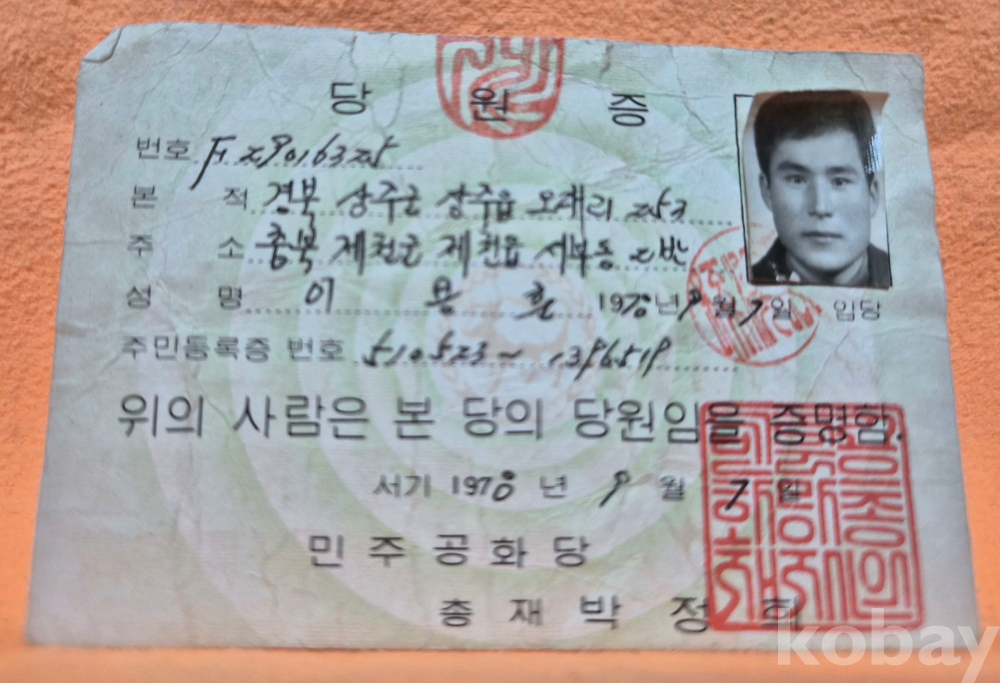 당 원 증
번호 F 290163225
본 적 경북 상주군 상주읍 오대리 253
주 소 충북 제천군 제천읍 서부동 2반
성 명 이 용 1970년 9월 7일 입당
주민등록증 번호
위의 사람은 본 당의 당원임을 증명함.
서기 1970년 9월 7일
민주공화당
총재 박정희
kobay